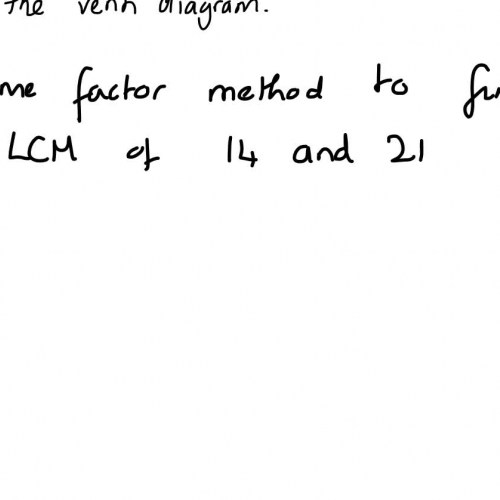 the venn diagram.
me factor method to
LCM of 14 and 21